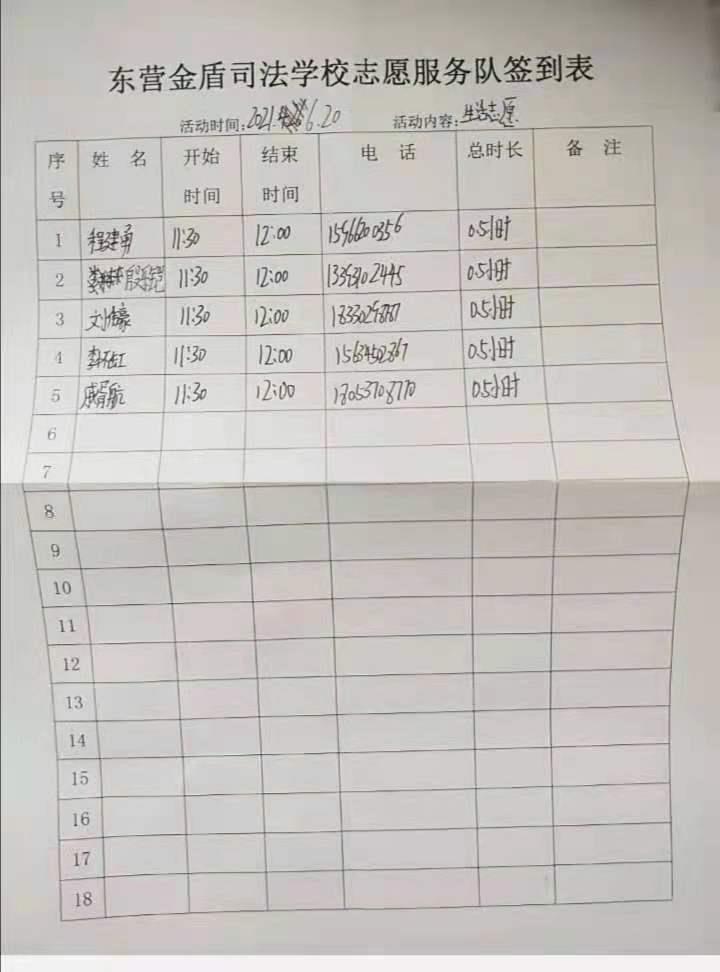 东营金盾司法学校志愿服务队签到表
活动时间:2021.6.20 活动内容:生活志愿
序号 姓 名 开始时间 结束时间 电 话 总时长 备 注
1 程建勇 11:30 12:00 0.5小时
2 11:30 12:00 0.5小时
3 11:30 12:00 0.5小时
4 11:30 12:00 0.5小时
5 11:30 12:00 18053708770 0.5小时
6
7
8
9
10
11
12
13
14
15
16
17
18